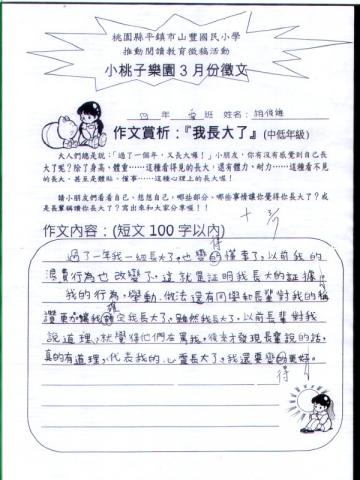 桃園縣平鎮市山豐國民小學
推動閱讀教育徵稿活動
小桃子樂園3月份徵文
四 年 班 姓名:
作文賞析:『我長大了』(中低年級)
大人們總是說:「過了一個年,又長大囉!」小朋友,你有沒有感覺到自己長
大了呢?除了身高、體重……這種看得見的大,還有體力、耐力……這種看不見
的大,甚至是體貼、懂事……這種心理上的長大喔!
請小朋友們看看自己,想想自己,哪些部分、哪些事情讓你覺得你長大了?或
是長輩稱讚你長大了?寫出來和大家分享喔!!
作文內容:(短文100字以內)
得
過了一年我一經長大了,也變的懂事了,以前我的
浪費行為也改變了。這就是証明我長大的証據。
我的行為,舉動、做法還有同學和長輩對我的稱
讚更加讓我確定我長大了,雖然我長大了,以前長輩對我
說道理,就覺得他們在罵我,後來才發現長輩說的話,
真的有道理,代表我的心靈長大了,我還要變的更好。
得